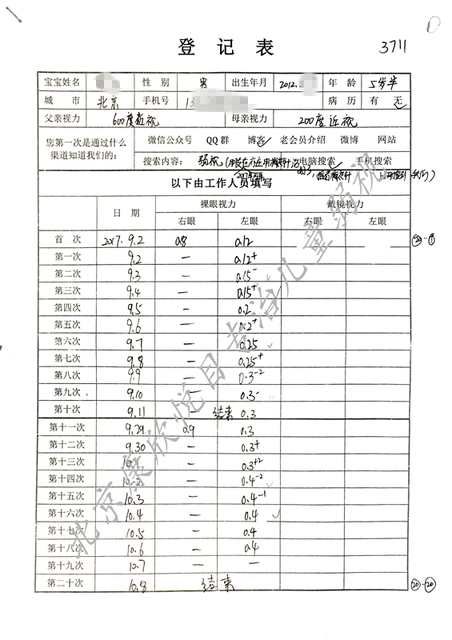 登记表
3711
宝宝姓名 性别 男 出生年月 2012. 年龄 5岁半
城市 北京 手机号 1 病历 有 无
父亲视力 600度近视 母亲视力 200度近视
您第一次是通过什么渠道知道我们的: 微信公众号 QQ群 博客 老会员介绍 微博 网站
搜索内容: 弱视 电脑搜索 手机搜索
以下由工作人员填写
日期 裸眼视力 戴镜视力
右眼 左眼 右眼 左眼
首次 2017.9.2 0.8 0.12
第一次 9.2 — 0.12+
第二次 9.3 — 0.15-
第三次 9.4 — 0.15+
第四次 9.5 — 0.2-
第五次 9.6 — 0.2+
第六次 9.7 — 0.25
第七次 9.8 — 0.25+
第八次 9.9 — 0.3-2
第九次 9.10 — 0.3-
第十次 9.11 — 结束 0.3
第十一次 9.29 0.9 0.3
第十二次 9.30 — 0.3+
第十三次 10.1 — 0.3+2
第十四次 10.2 — 0.4-2
第十五次 10.3 — 0.4-1
第十六次 10.4 — 0.4
第十七次 10.5 — 0.4
第十八次 10.6 — 0.4
第十九次 10.7 — —
第二十次 10.8 结束
20-20
北京康欣悦目专治儿童弱视